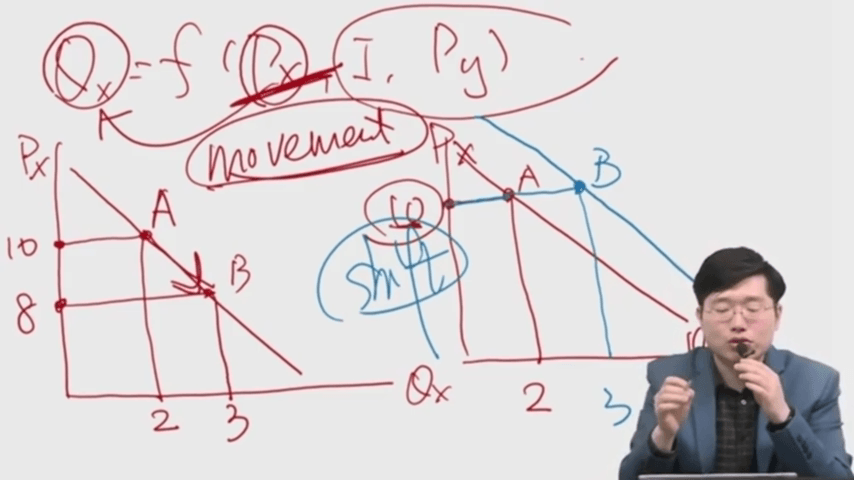 Qx = f (Px, I, Py)
movement
Px
A
10
B
8
2
3
Qx
Px
A
B
10
shift
2
3